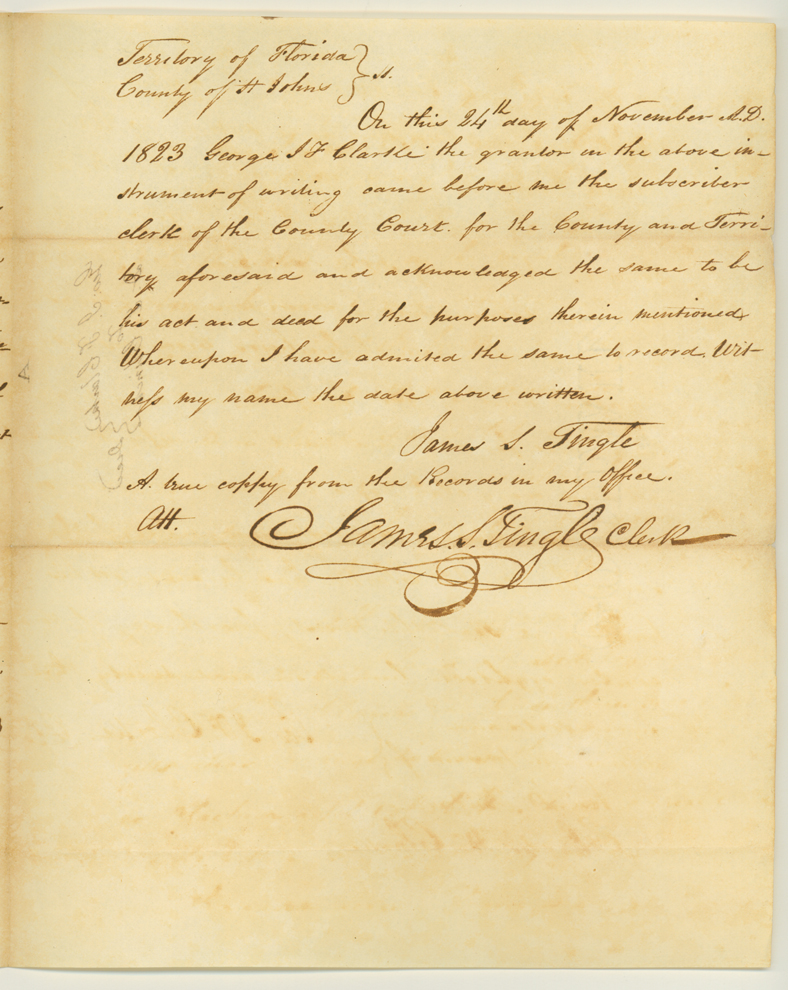 Territory of Florida
County of St Johns } ss.
On this 24th day of November A.D.
1823 George I F Clarke the grantor in the above in-
strument of writing came before me the subscriber
clerk of the County Court. for the County and Terri-
tory aforesaid and acknowledged the same to be
his act and deed for the purposes therein mentioned
Whereupon I have admited the same to record. Wit-
ness my name the date above written.
James S. Tingle
A. true coppy from the Records in my Office.
Att.
James. S. Tingle Clerk